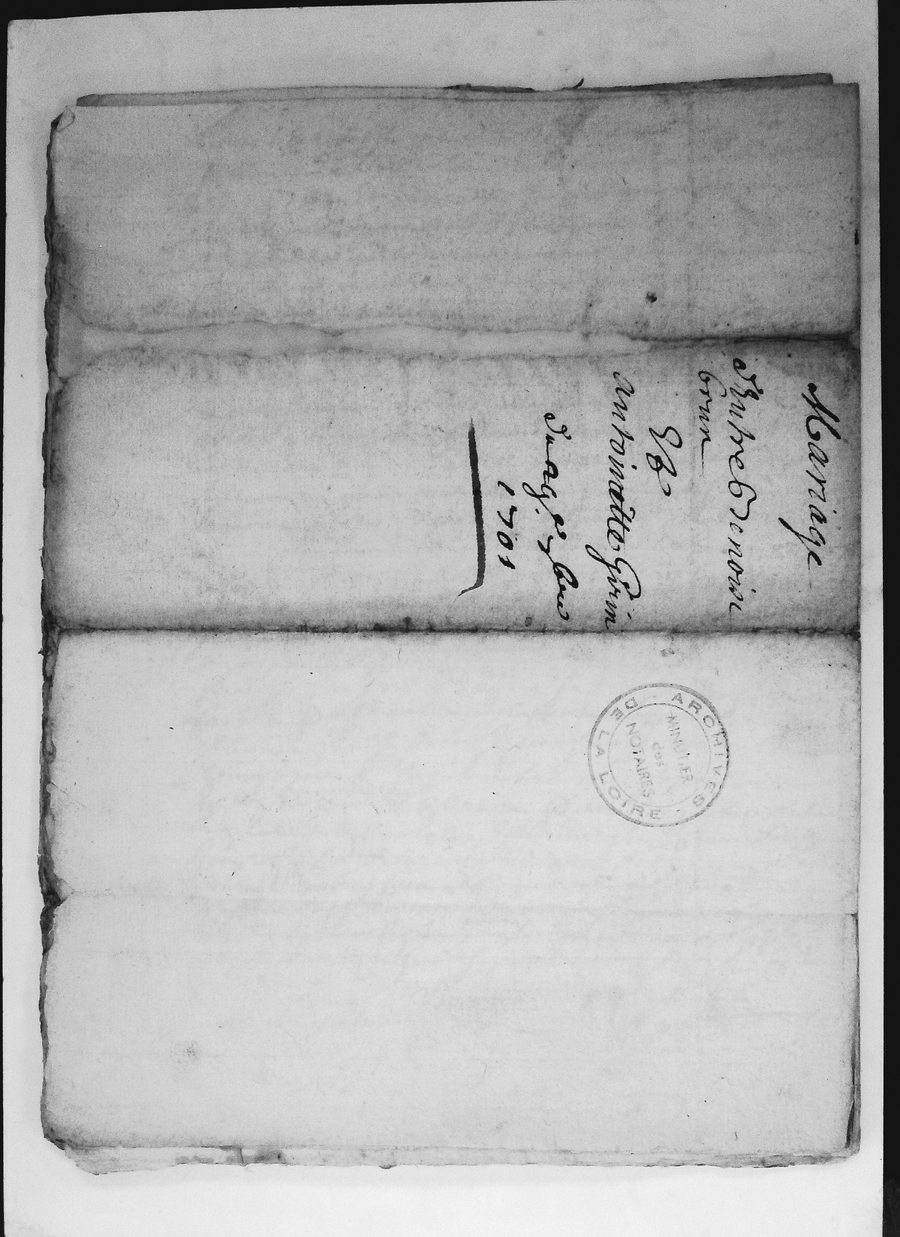 Mariage
Entre Benoist
brun
Et
antoinette Girin
Du 29e xbre
1701
ARCHIVES DE LA LOIRE
MINUTIER
des
NOTAIRES